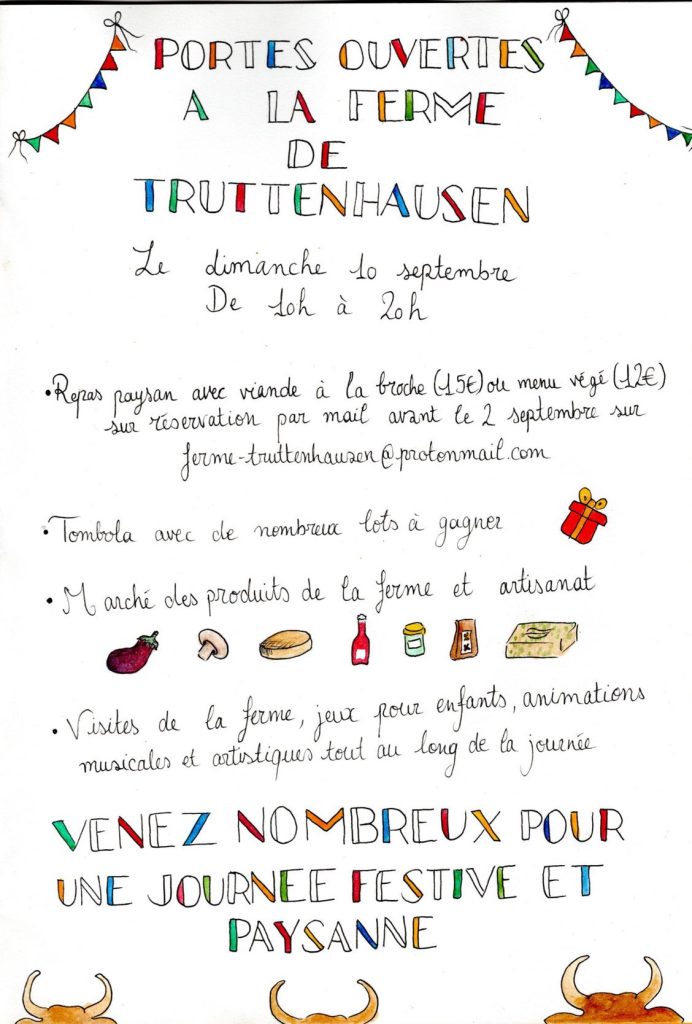 PORTES OUVERTES
A LA FERME
DE
TRUTTENHAUSEN
Le dimanche 10 septembre
De 10h à 20h
• Repas paysan avec viande à la broche (15€) ou menu végé (12€)
sur réservation par mail avant le 2 septembre sur
ferme-truttenhausen@protonmail.com
• Tombola avec de nombreux lots à gagner
• Marché des produits de la ferme et artisanat
• Visites de la ferme, jeux pour enfants, animations
musicales et artistiques tout au long de la journée
VENEZ NOMBREUX POUR
UNE JOURNEE FESTIVE ET
PAYSANNE